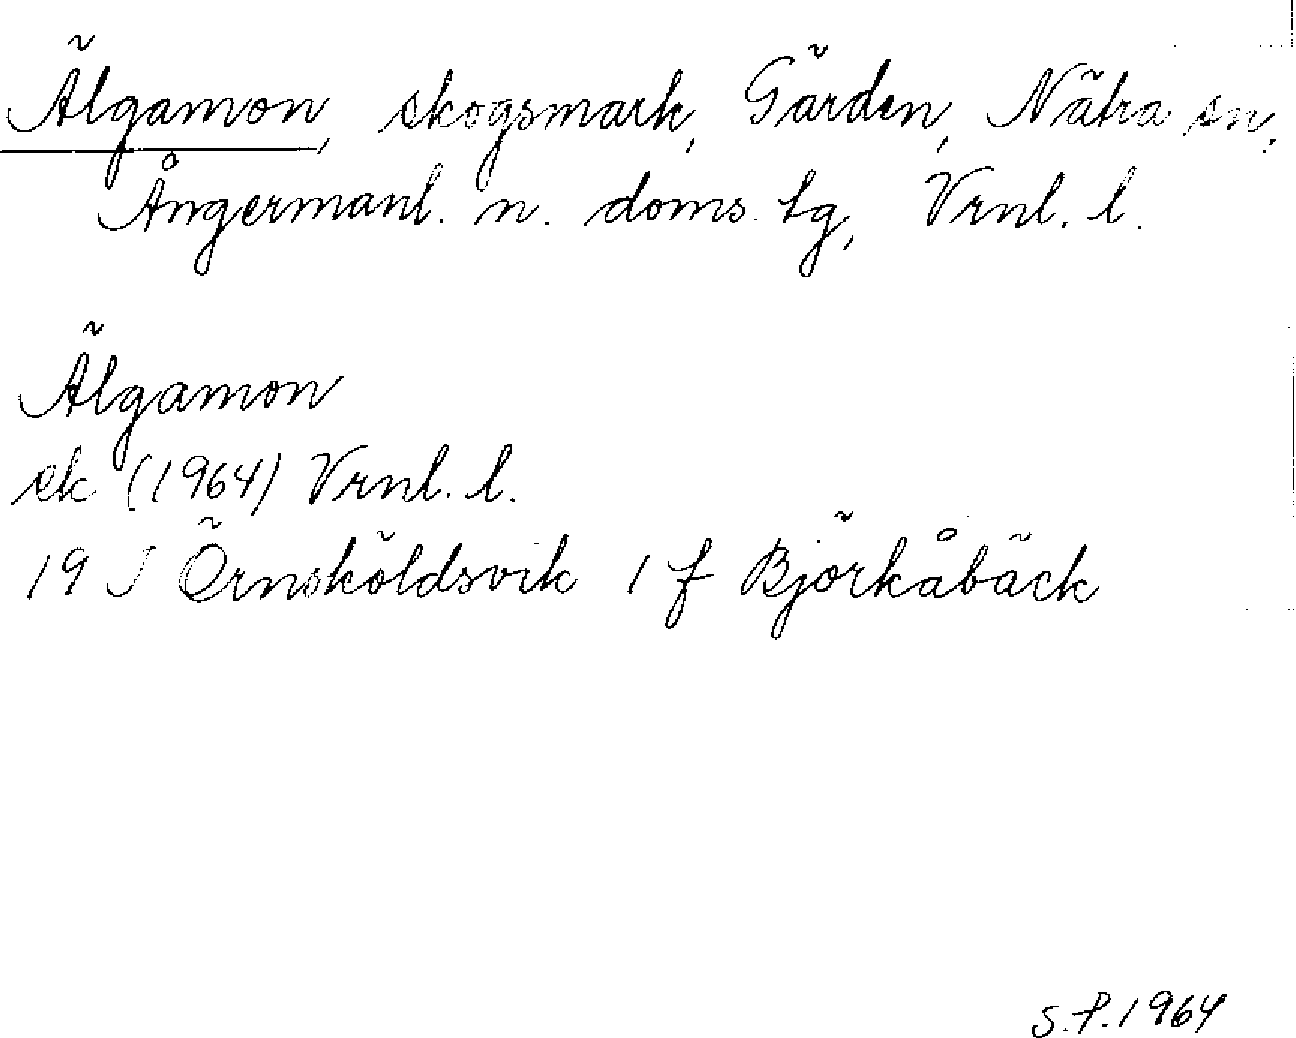 Älgamon, skogsmark, Gärden, Nätra sn,
Ångermanl. n. doms. tg, Vrnl. l.
Älgamon
ek (1964) Vrnl. l.
19 J Örnsköldsvik 1 f Björkåbäck
S.P. 1964